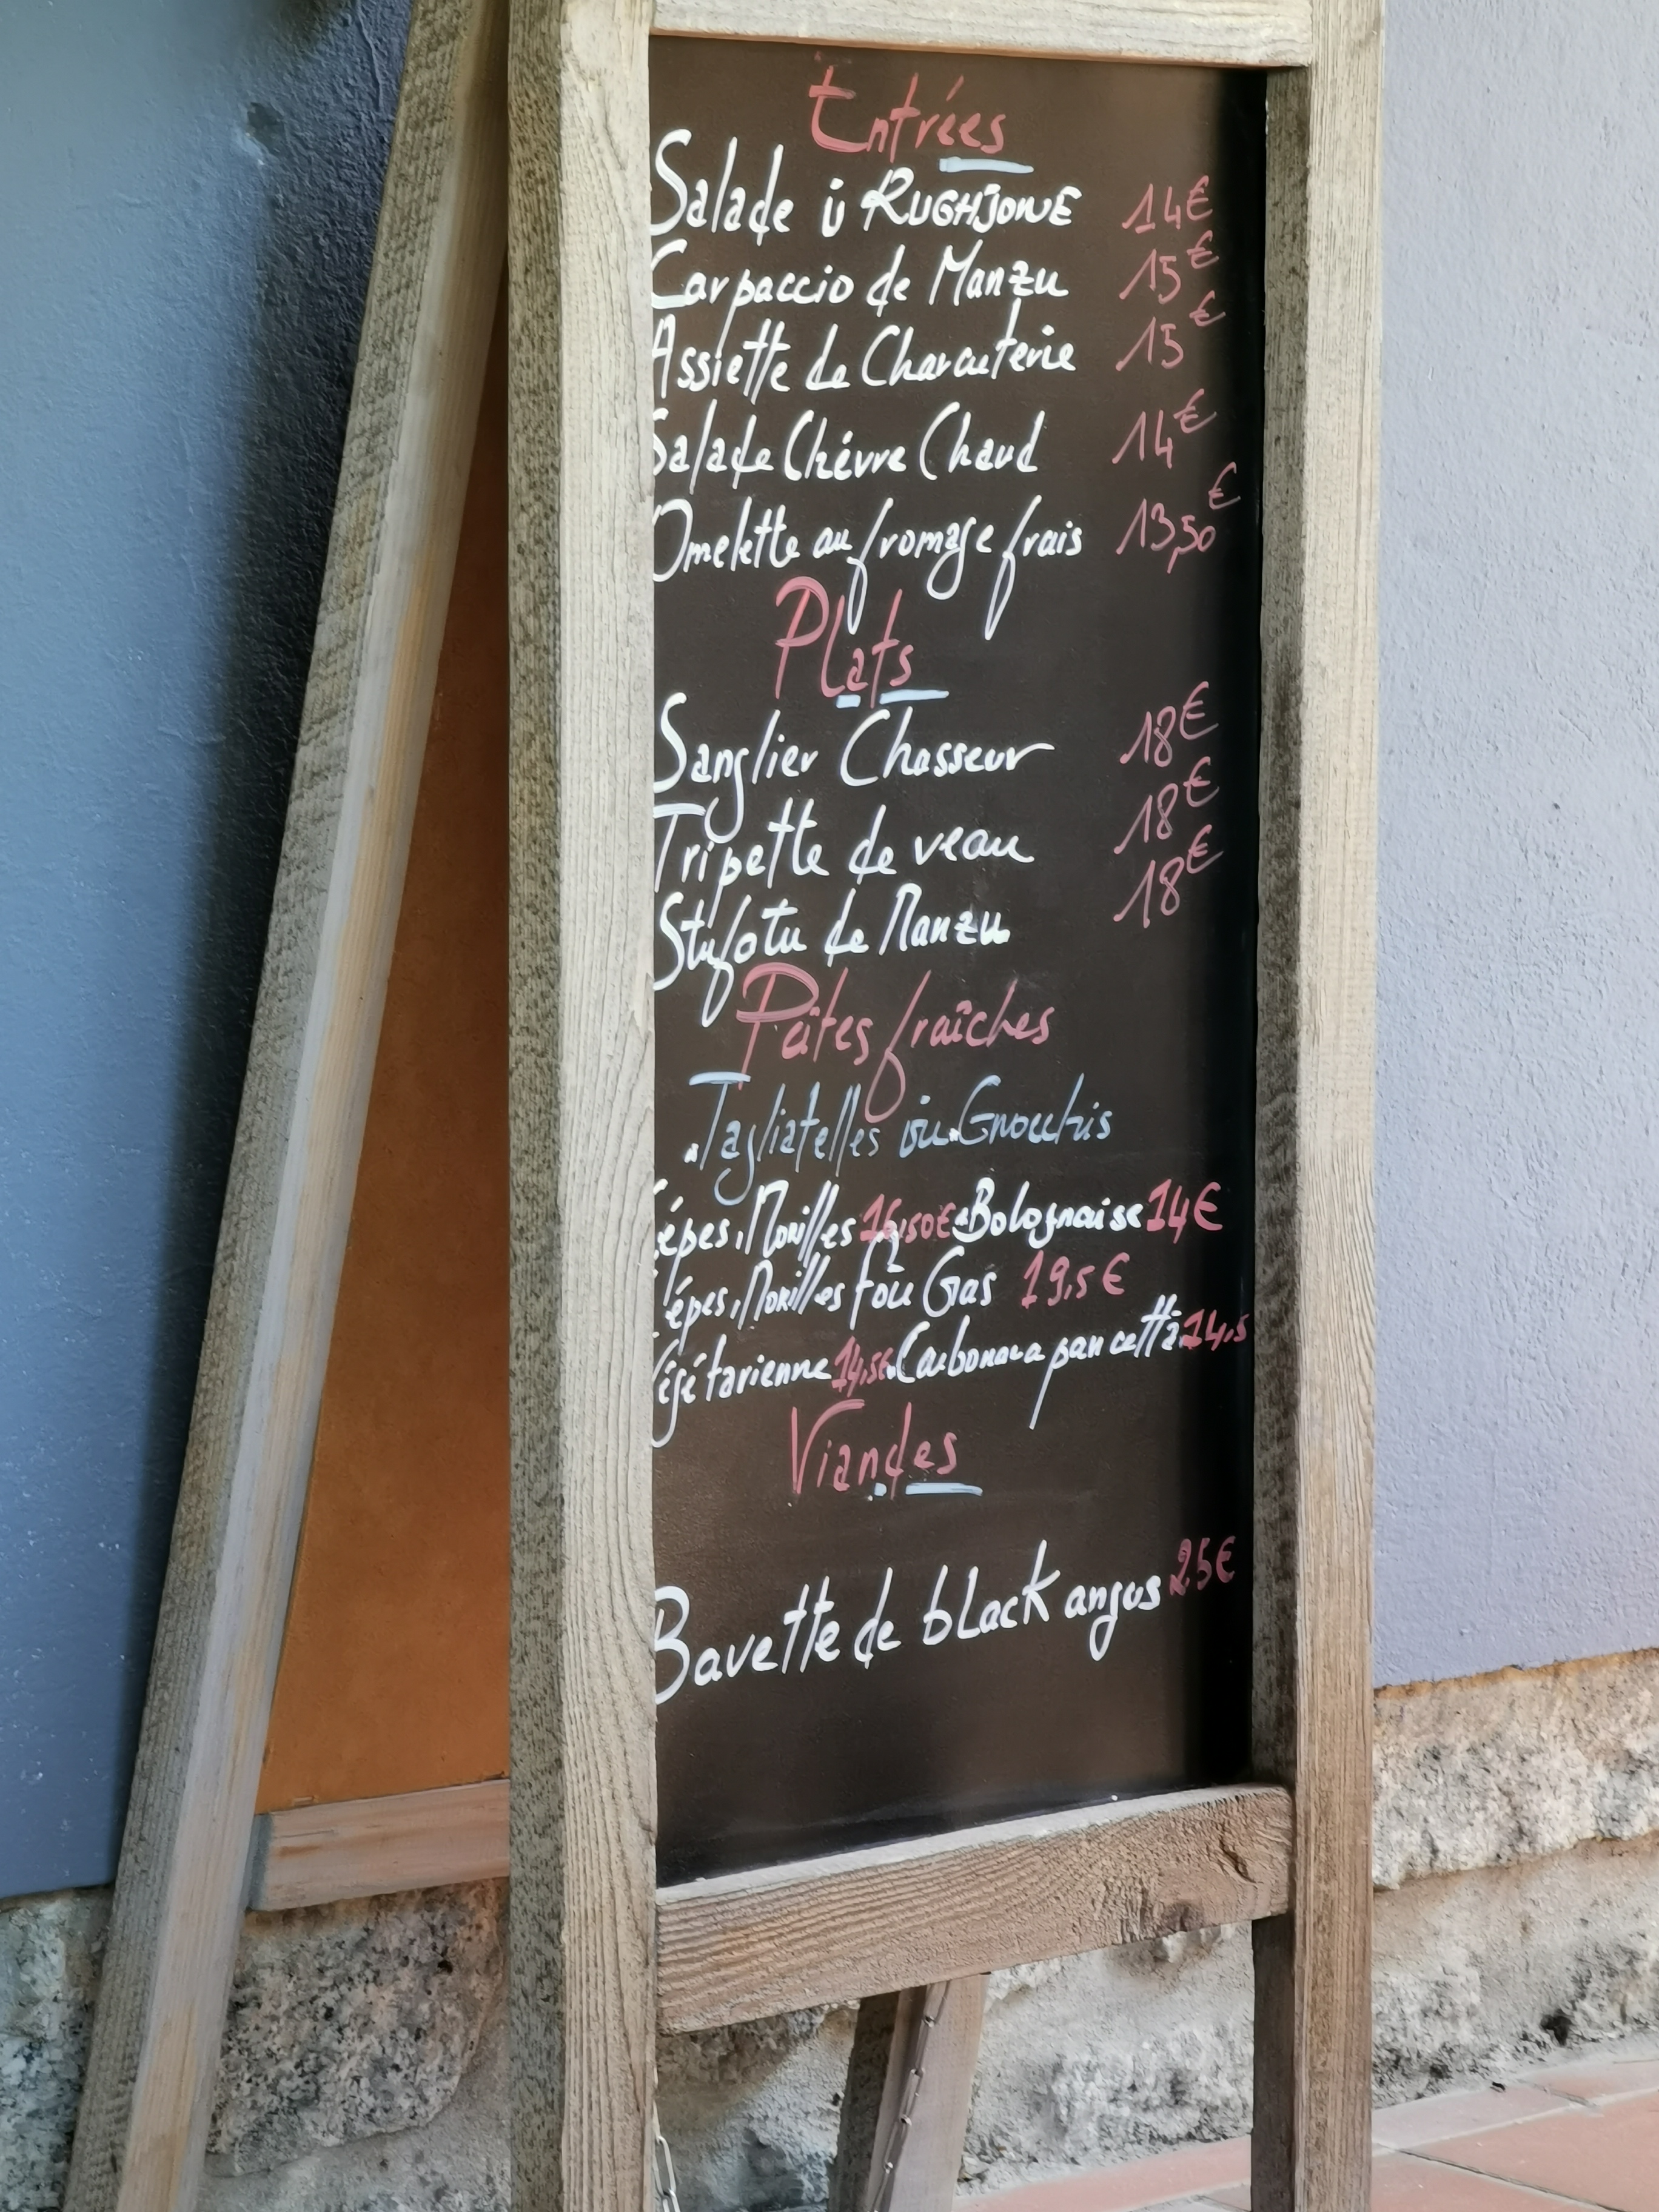 Entrées
Salade ù RUGHJONE 14€
Carpaccio de Manzu 15€
Assiette de Charcuterie 15€
Salade Chèvre Chaud 14€
Omelette au fromage frais 13,50€
Plats
Sanglier Chasseur 18€
Tripette de veau 18€
Stufatu de Manzu 18€
Pâtes fraîches
Tagliatelles ou Gnocchis
Cèpes, Morilles 16,50€ Bolognaise 14€
Cèpes, Morilles foie Gras 19,5€
Végétarienne 14,5€ Carbonara pancetta 14,5
Viandes
Bavette de black angus 25€